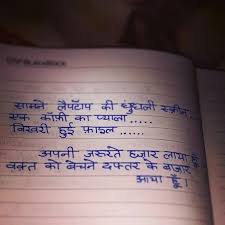 सामने लैपटॉप की धुंधली स्क्रीन...
एक कॉफ़ी का प्याला.....
बिखरी हुई फ़ाइल......
अपनी जरूरते हज़ार लाया हूँ
वक़्त को बेचने दफ्तर के बाज़ार
आया हूँ।